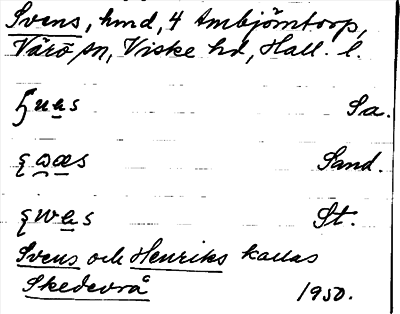 Svens, hmd, 4 Ambjörntorp,
Värö sn, Viske hd, Hall. l.
Sa.
Sand.
St.
Svens och Henriks kallas
Skedevrå 1950.